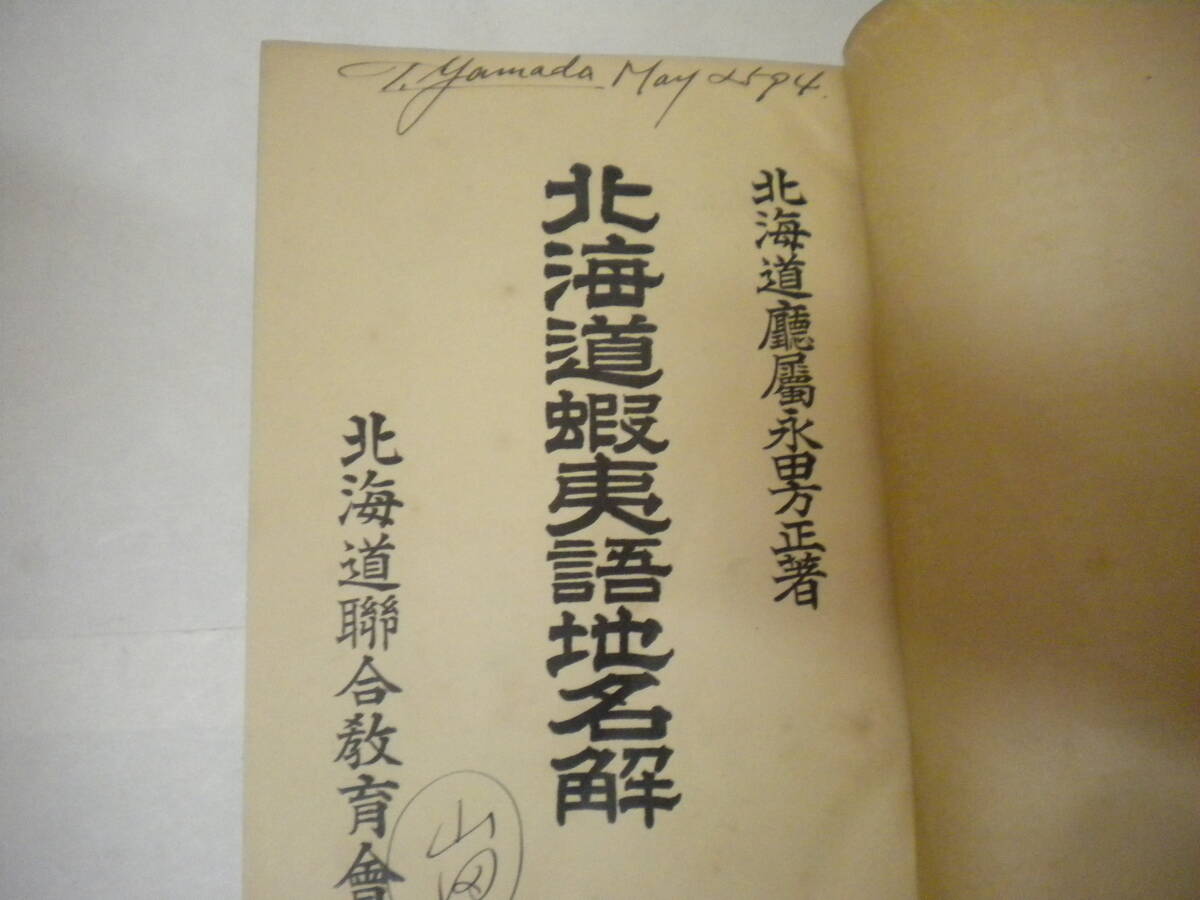 T. Yamada May 2594.
北海道廳屬永田方正著
北海道蝦夷語地名解
北海道聯合教育會
山田